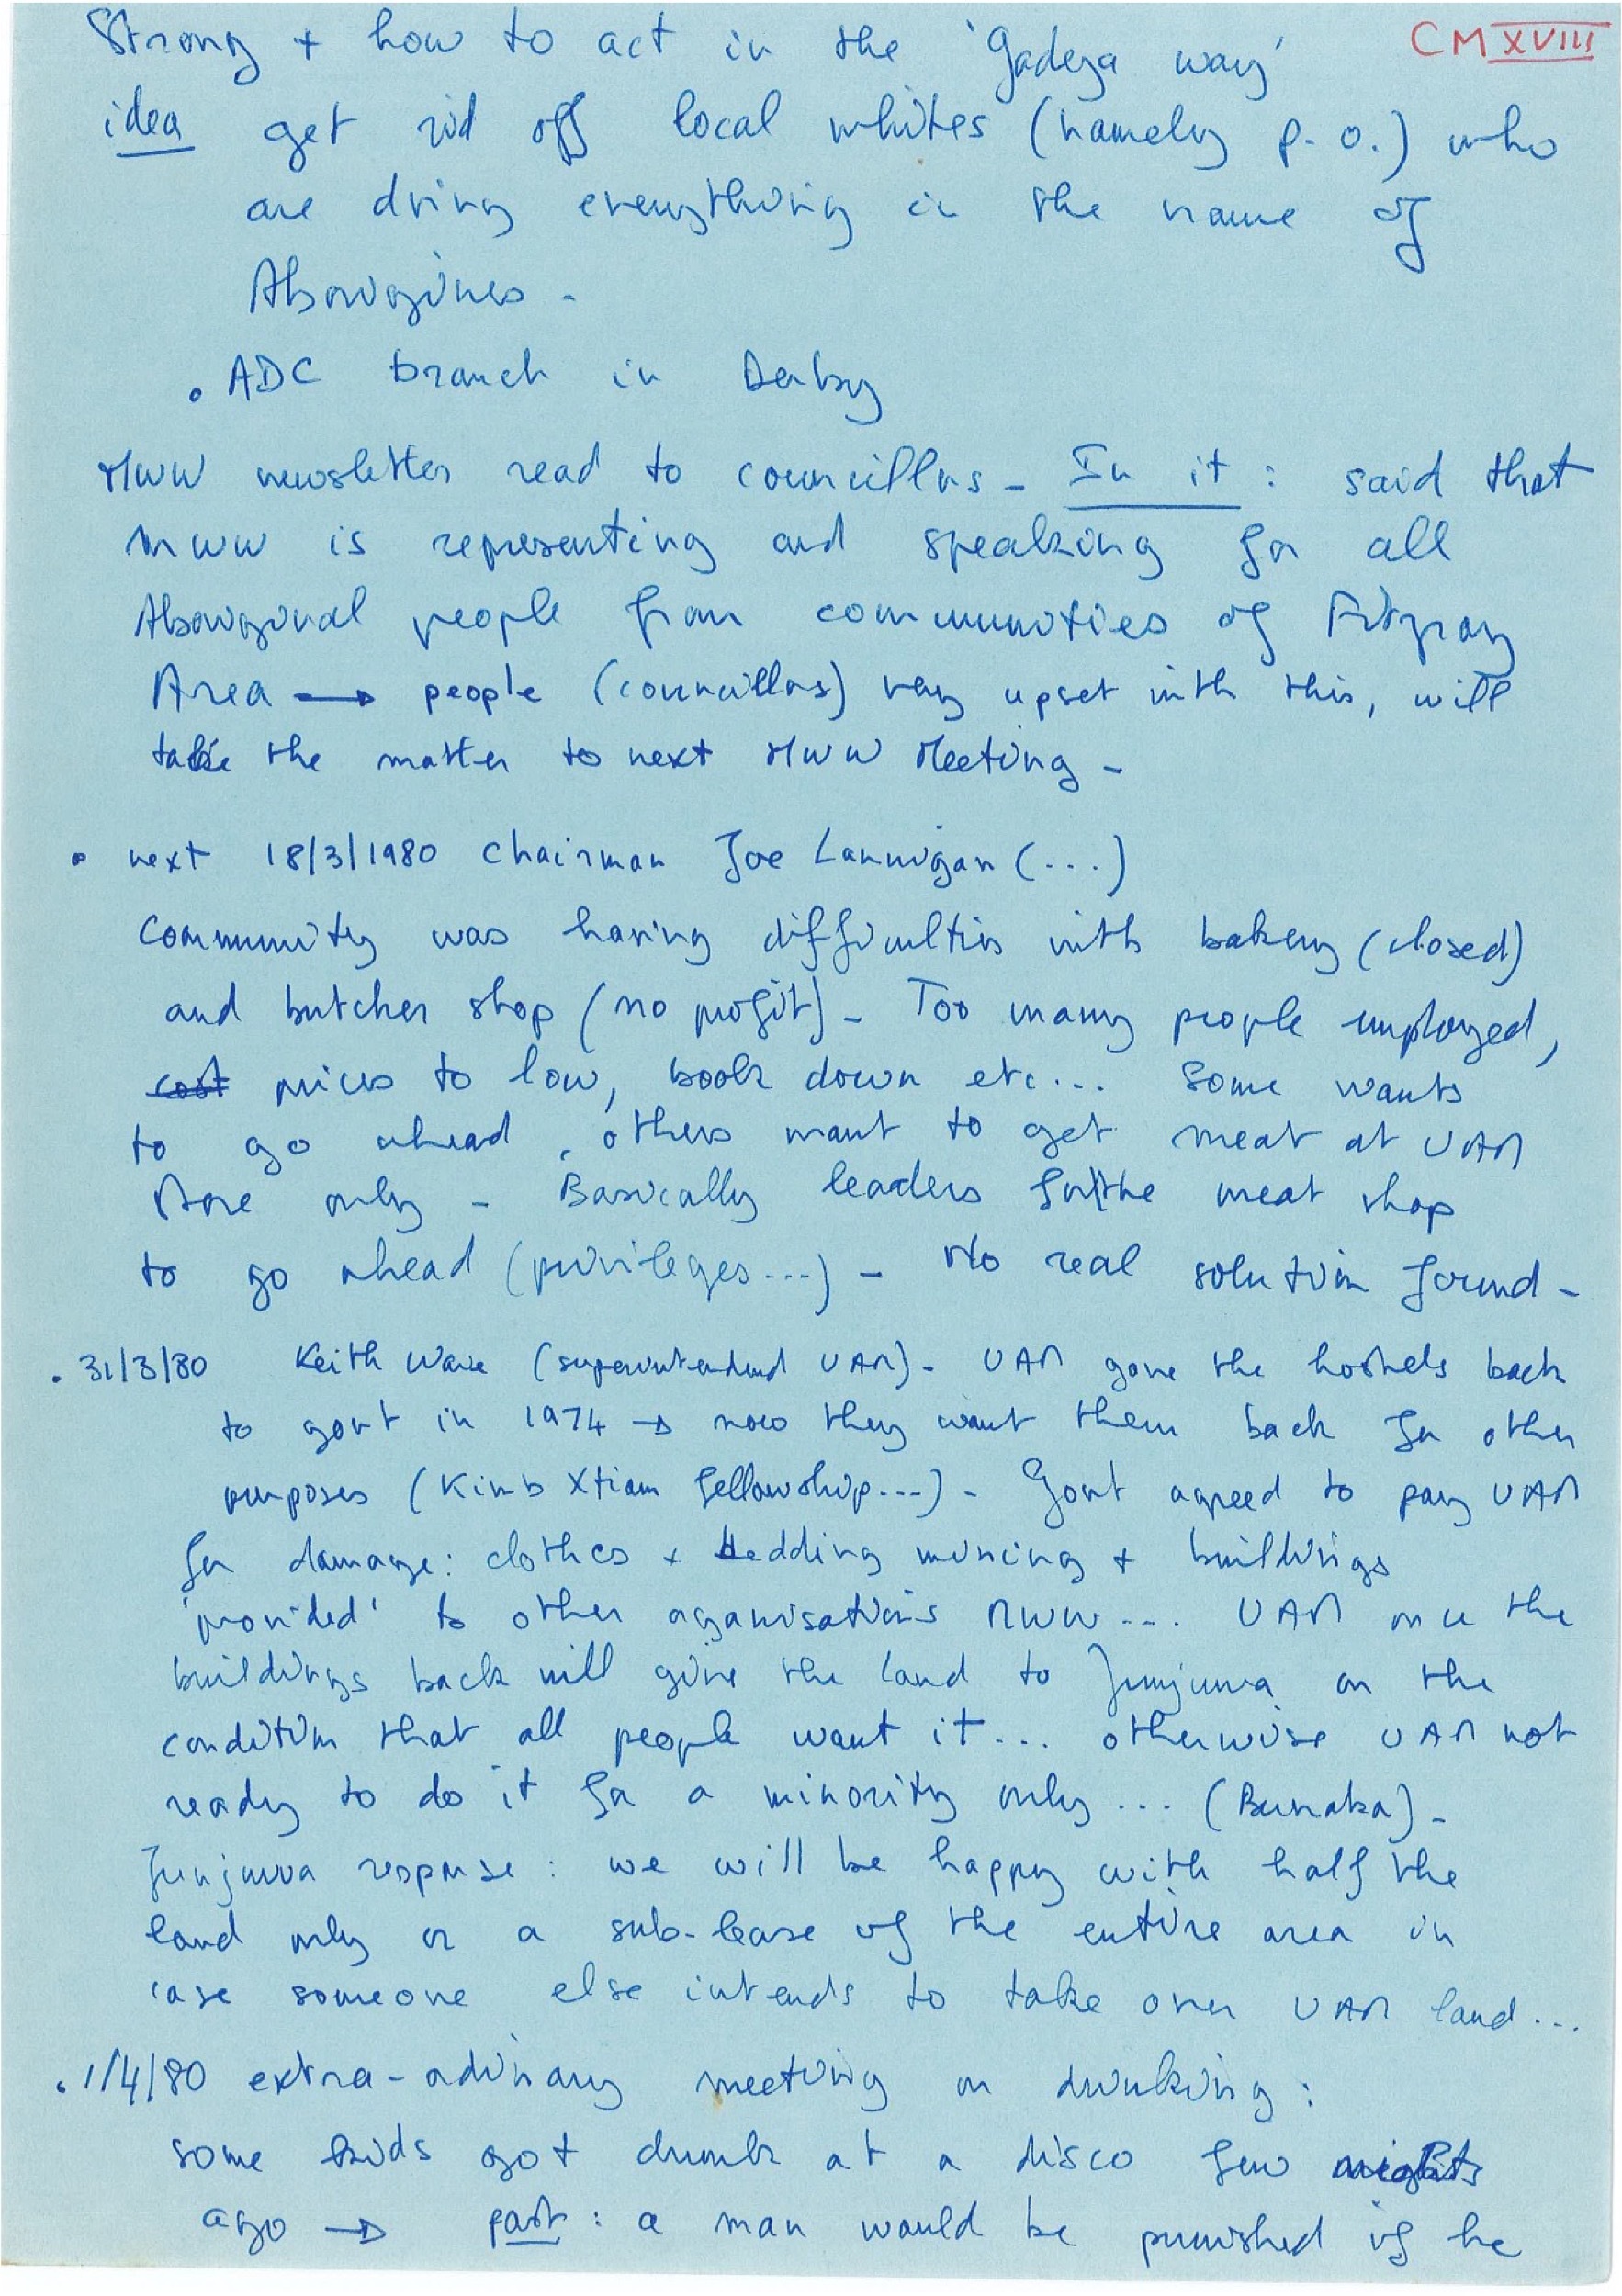 Strong + how to act in the 'gadeya way' CM XVIII
idea get rid off local whites (namely p.o.) who
are doing everything in the name of
Aborigines -
• ADC branch in Derby
MWW newsletter read to councillors - In it : said that
MWW is representing and speaking for all
Aboriginal people from communities of Fitzroy
Area → people (councillors) very upset with this, will
take the matter to next MWW Meeting -
• next 18/3/1980 Chairman Joe Lannigan (...)
Community was having difficulties with bakery (closed)
and butcher shop (no profit) - Too many people employed,
cost prices to low, book down etc... Some wants
to go ahead, others want to get meat at UAM
Store only - Basically leaders for the meat shop
to go ahead (privileges...) - No real solution found -
• 31/3/80 Keith (superintendend UAM) - UAM gave the hostels back
to govt in 1974 → now they want them back for other
purposes (Kimb Xtian fellowship...) - Govt agreed to pay UAM
for damage: clothes + bedding missing + buildings
'provided' to other organisations MWW... UAM once the
buildings back will give the land to Junjuwa on the
condition that all people want it... otherwise UAM not
ready to do it for a minority only... (Bunaba) -
Junjuwa response : we will be happy with half the
land only or a sub-lease of the entire area in
case someone else intends to take over UAM land...
• 1/4/80 extra-ordinary meeting on drinking :
some kids got drunk at a disco few nights
ago → past : a man would be punished if he